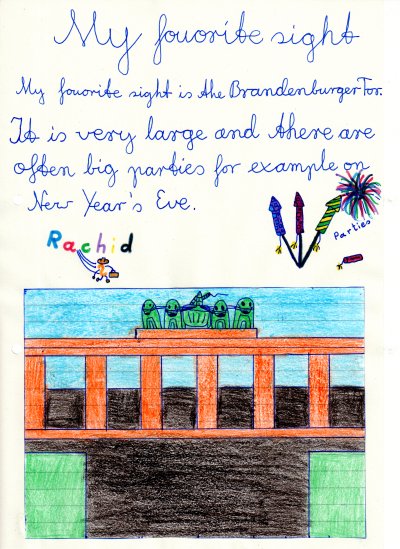 My fouorite sight
My fouorite sight is the Brandenburger Tor.
It is very large and there are
often big parties for example on
New Year's Eve.
Parties
Rachid